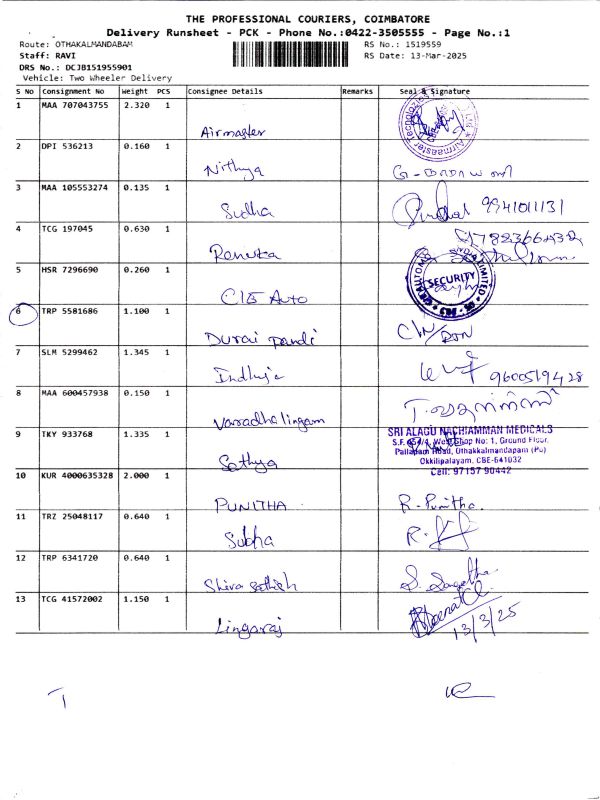 THE PROFESSIONAL COURIERS, COIMBATORE
Delivery Runsheet - PCK - Phone No.:0422-3505555 - Page No.:1
Route: OTHAKALMANDABAM RS No.: 1519559
Staff: RAVI RS Date: 13-Mar-2025
DRS No.: DCJB151955901
Vehicle: Two Wheeler Delivery
S No Consignment No Weight PCS Consignee Details Remarks Seal & Signature
1 MAA 707043755 2.320 1 Airmaster
2 DPI 536213 0.160 1 Nithya
3 MAA 105553274 0.135 1 Sudha 9941011131
4 TCG 197045 0.630 1 Renuka
5 HSR 7296690 0.260 1 CIE Auto SECURITY
6 TRP 5581686 1.100 1 Durai pandi
7 SLM 5299462 1.345 1 Indhuja 9600519428
8 MAA 600457938 0.150 1 Varadhalingam
9 TKY 933768 1.335 1 Sathya
SRI ALAGU NACHIAMMAN MEDICALS
Shop No: 1, Ground Floor,
Road, Othakkalmandapam (Po)
Okkilipalayam, CBE-641032
Cell: 97157 90442
10 KUR 4000635328 2.000 1 PUNITHA R. Punitha
11 TRZ 25048117 0.640 1 Subha
12 TRP 6341720 0.640 1 Shiva Sathish
13 TCG 41572002 1.150 1 Lingaraj 13/3/25